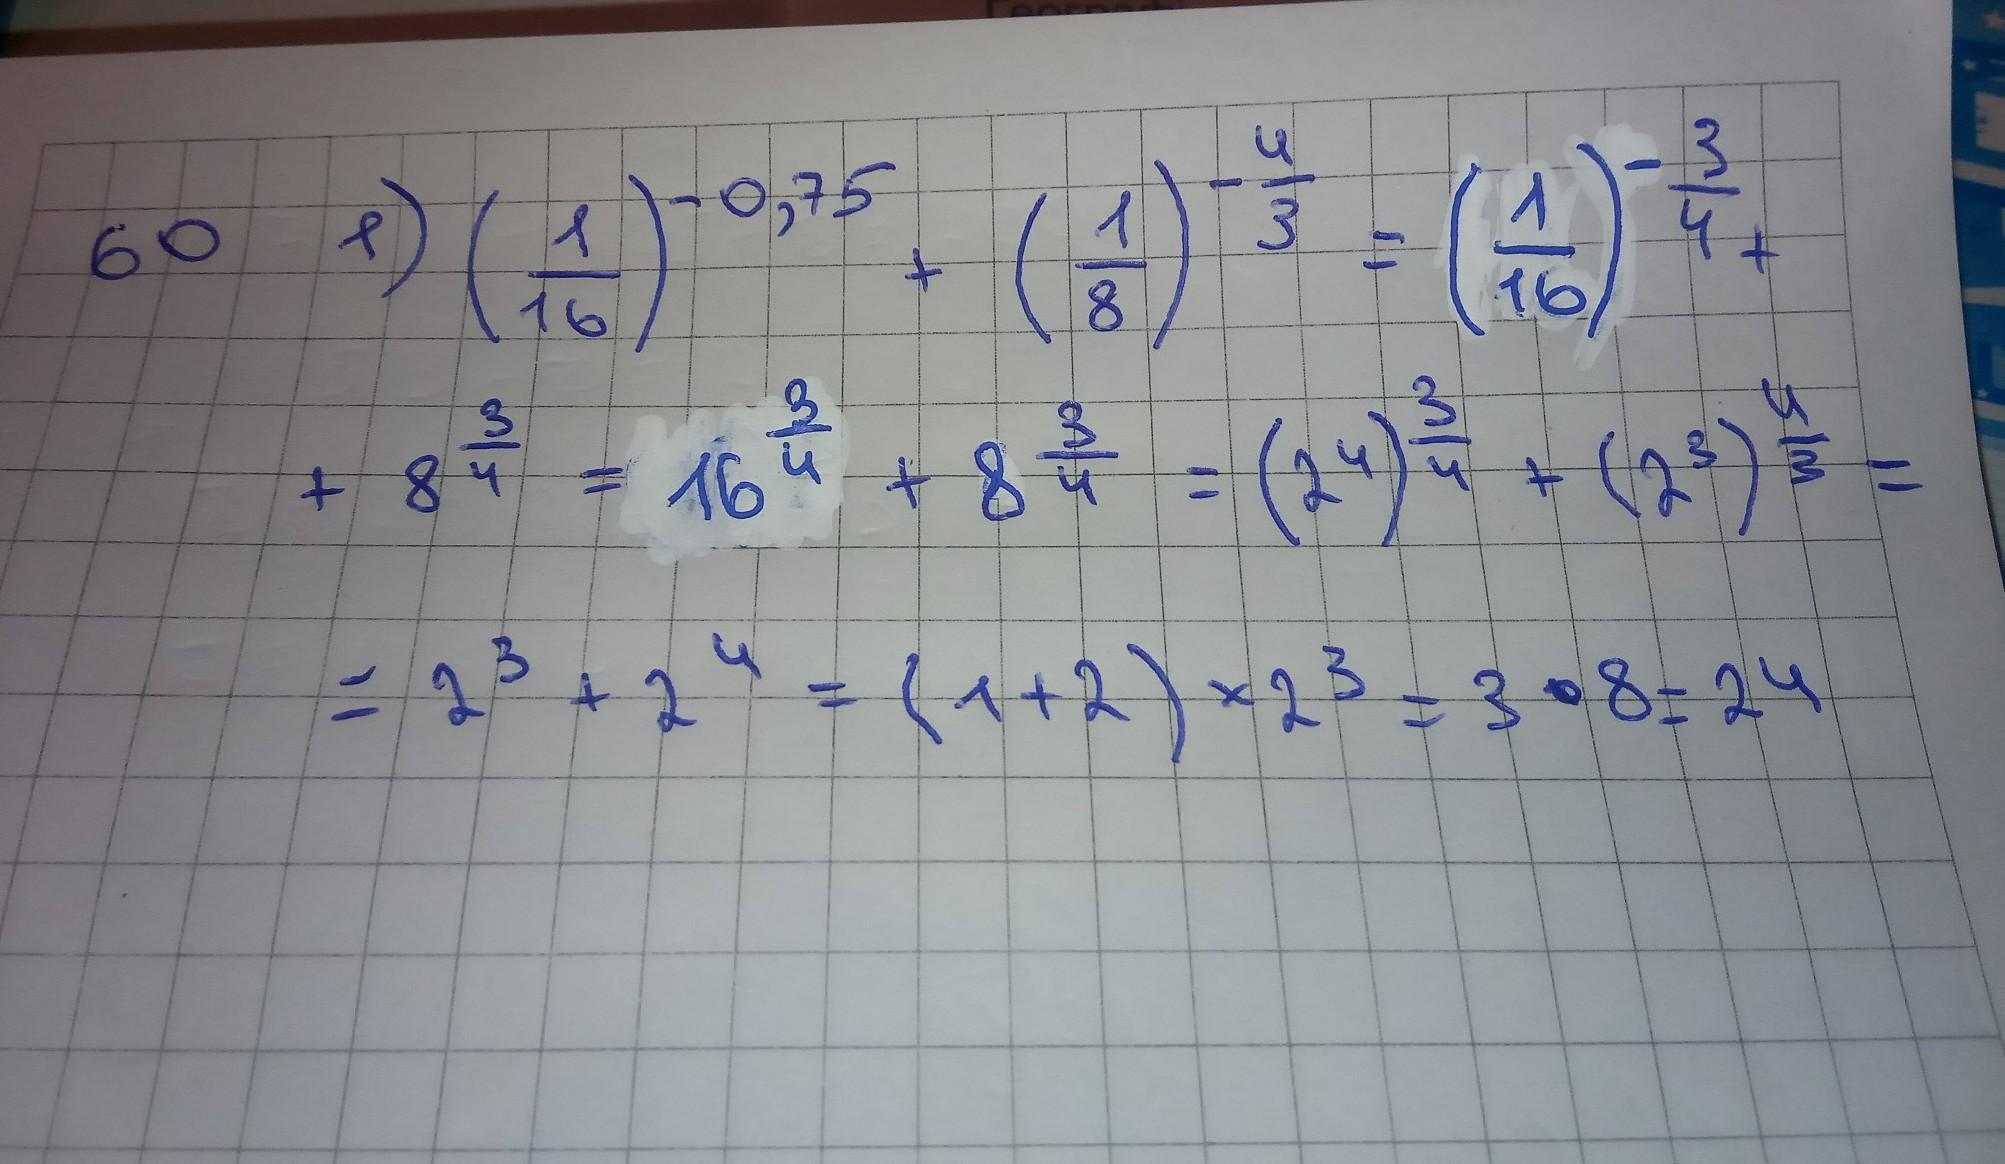 60 1) (1/16)^{-0,75} + (1/8)^{-4/3} = (1/16)^{-3/4} +
+ 8^{3/4} = 16^{3/4} + 8^{3/4} = (2^4)^{3/4} + (2^3)^{4/3} =
= 2^3 + 2^4 = (1+2) × 2^3 = 3 • 8 = 24